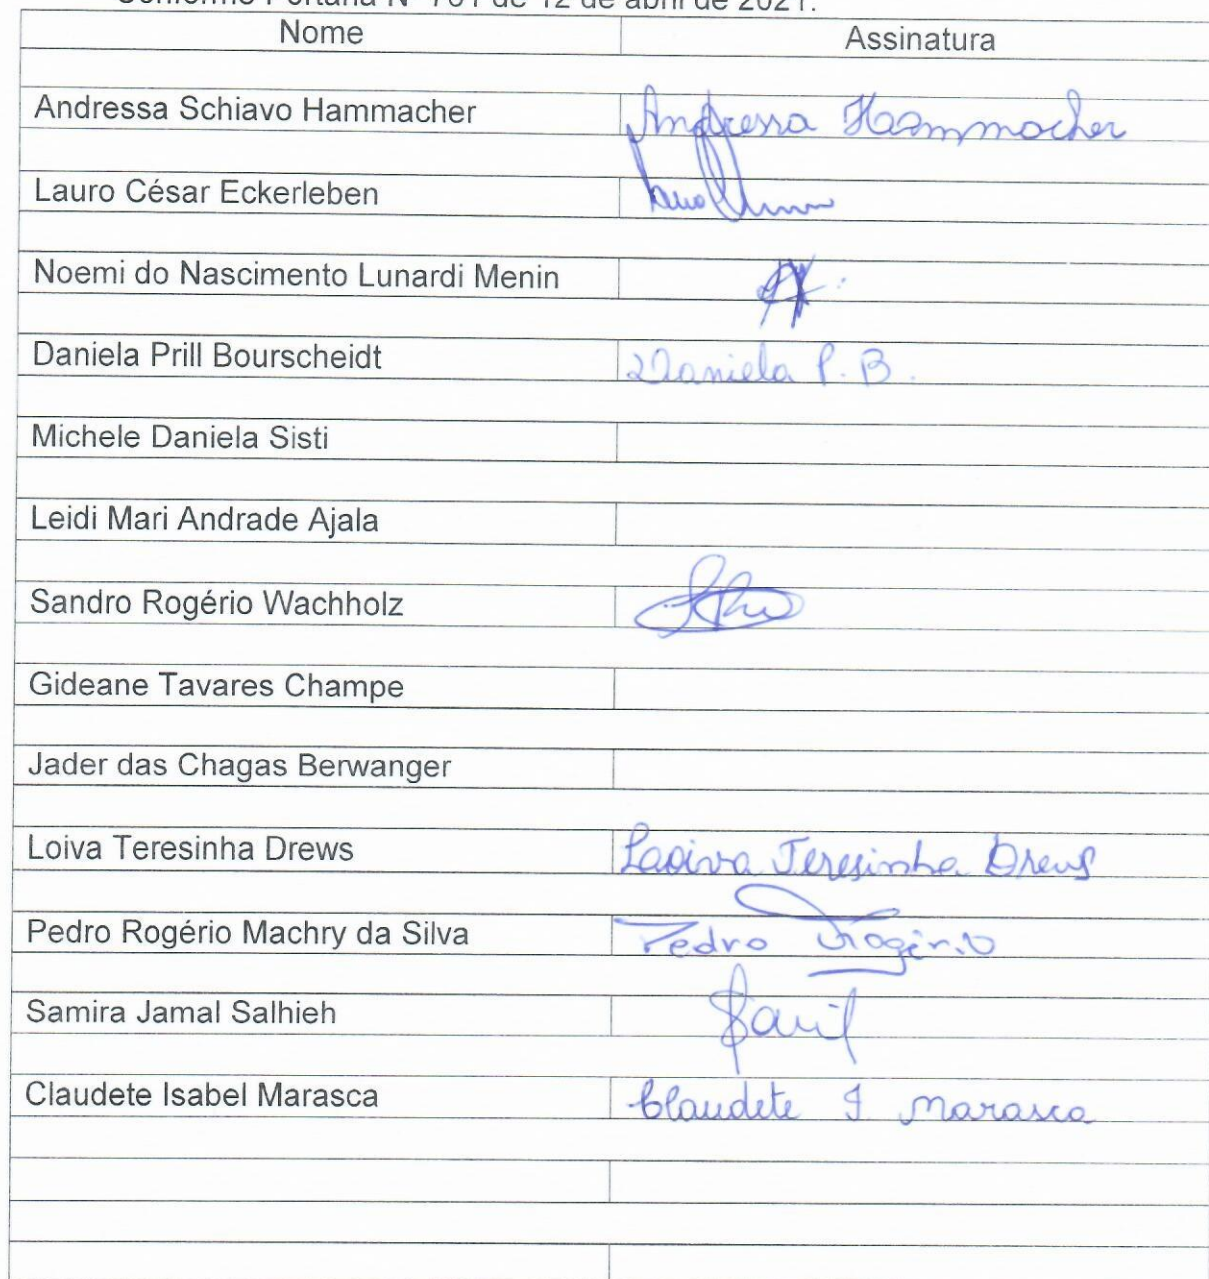 Conforme Portaria Nº 761 de 12 de abril de 2021.
Nome Assinatura
Andressa Schiavo Hammacher Andressa Hammacher
Lauro César Eckerleben
Noemi do Nascimento Lunardi Menin
Daniela Prill Bourscheidt Daniela P. B.
Michele Daniela Sisti
Leidi Mari Andrade Ajala
Sandro Rogério Wachholz
Gideane Tavares Champe
Jader das Chagas Berwanger
Loiva Teresinha Drews Loiva Teresinha Drews
Pedro Rogério Machry da Silva Pedro Rogério
Samira Jamal Salhieh
Claudete Isabel Marasca Claudete I Marasca